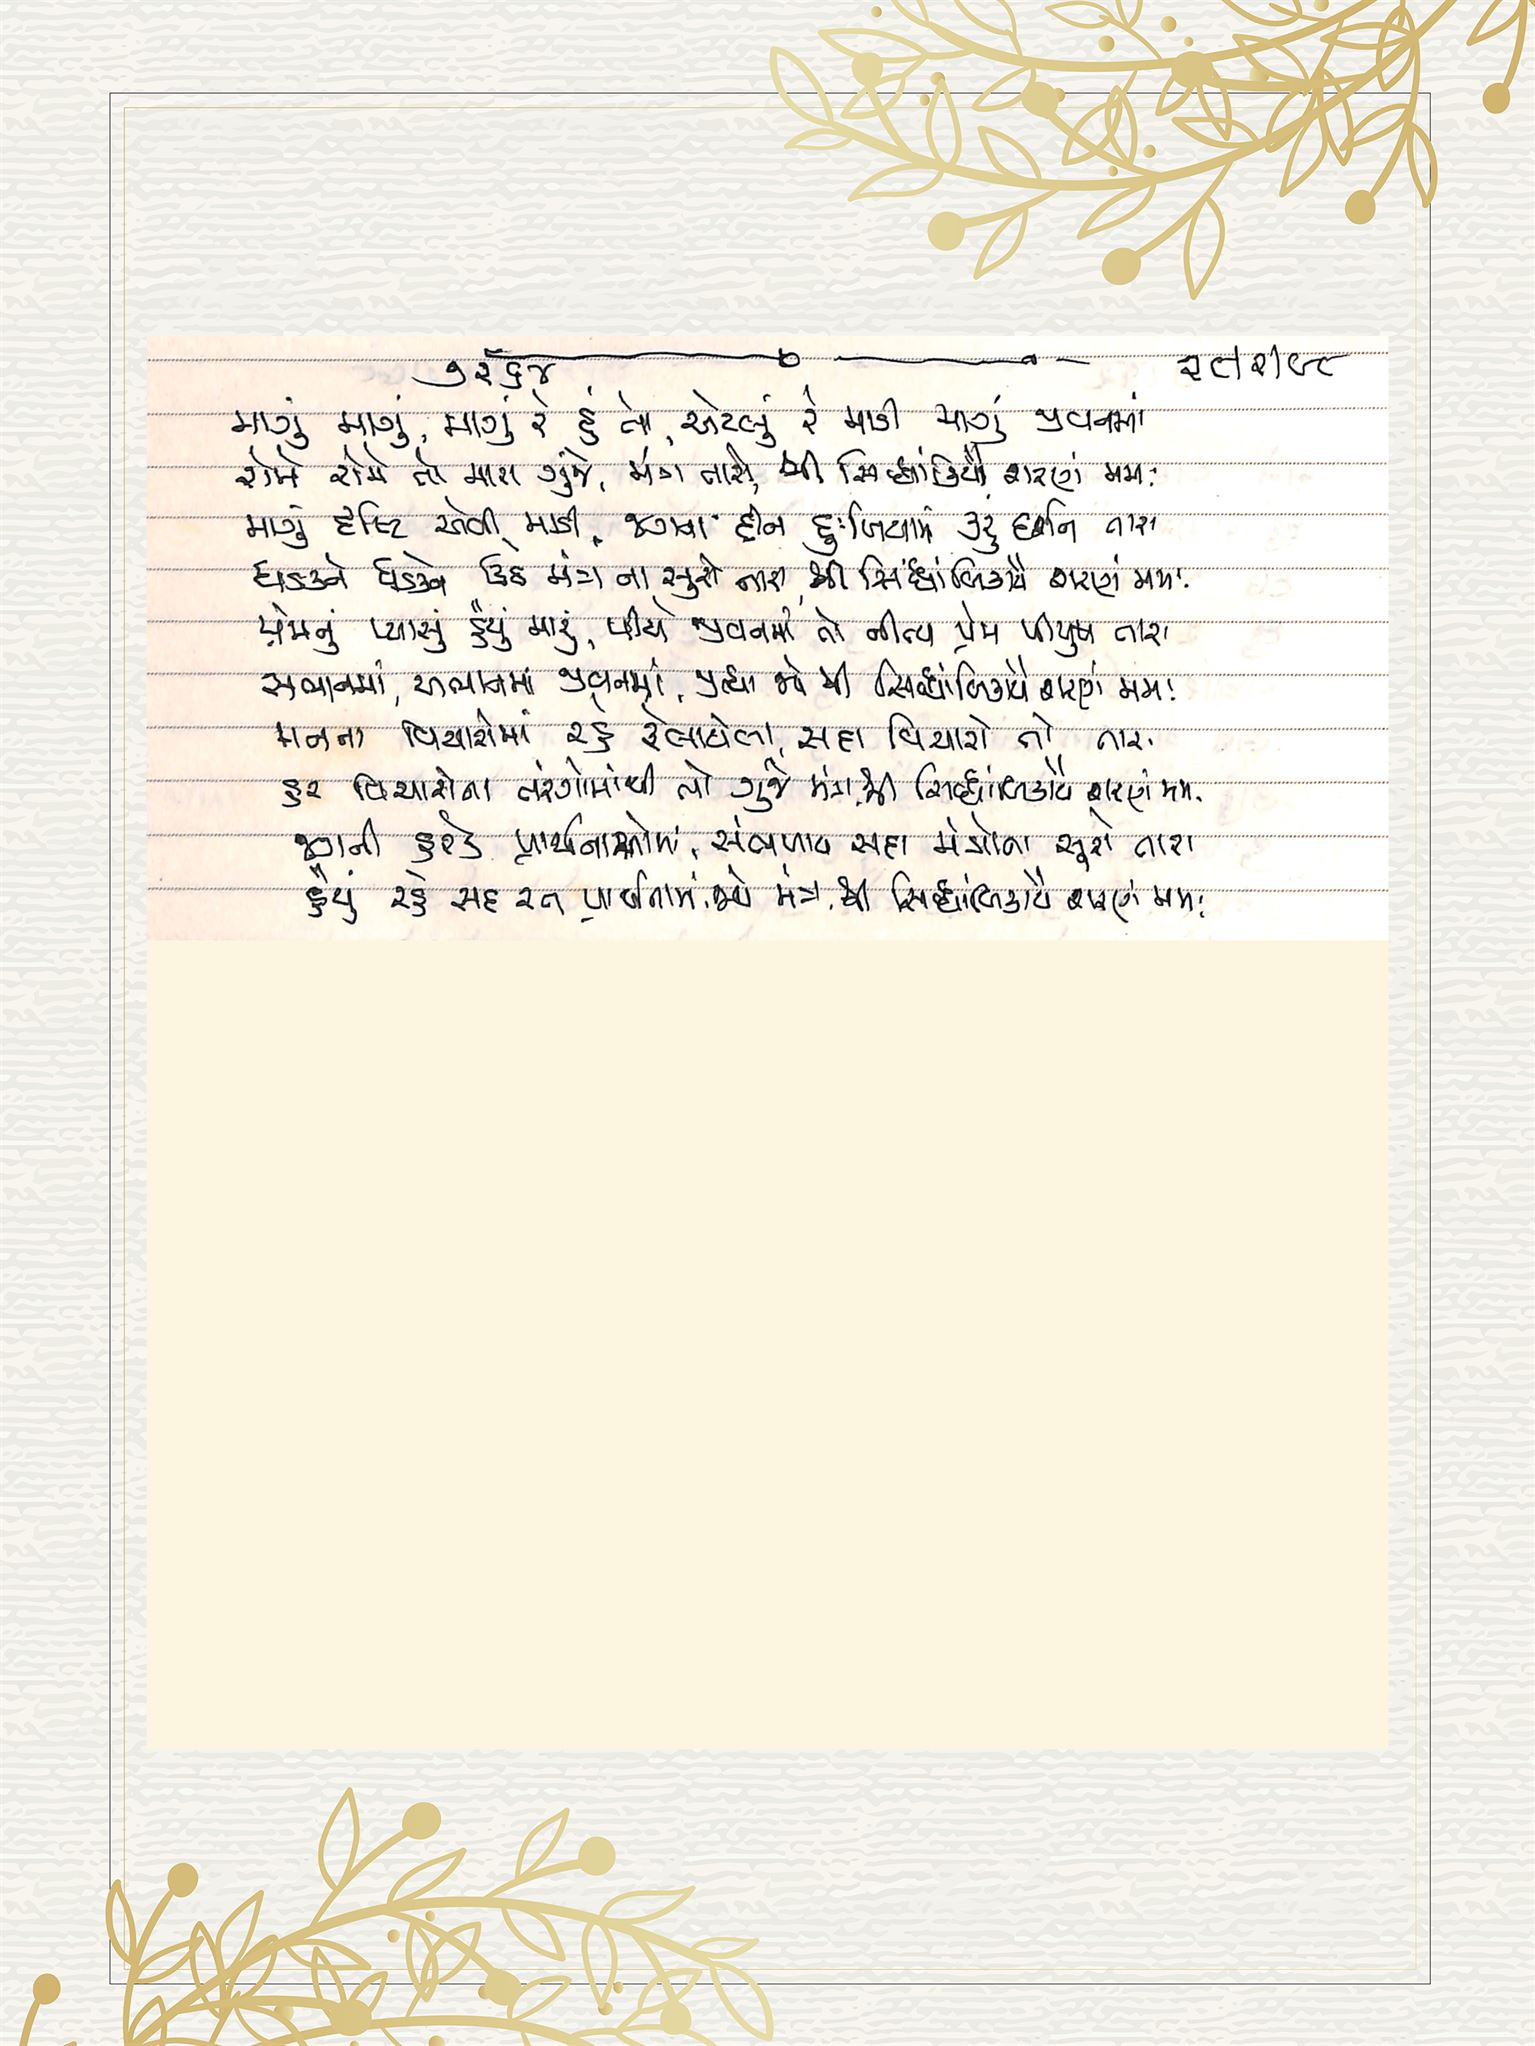 માગું માગું, માગું રે હું તો, એટલું રે માડી માગું જીવનમાં
રોમે રોમે તો મારા ગુંજે, મંત્ર તારો, શ્રી સિધ્ધાંબિકાયૈ શરણં મમઃ
માગું દૃષ્ટિ એવી માડી, જગના દીન દુઃખિયામાં કરું દર્શન તારા
ધડકને ધડકને ઉઠે મંત્ર ના સૂરો તારા, શ્રી સિધ્ધાંબિકાયૈ શરણં મમઃ
પ્રેમનું પ્યાસું હૈયું મારું, પીયે જીવનમાં તો નીત્ય પ્રેમ પીયુષ તારા
સભાનમાં, અભાનમાં જીવનમાં, મંત્ર શ્રી સિધ્ધાંબિકાયૈ શરણં મમઃ
મનના વિચારોમાં રહે રેલાયેલા, સદા વિચારો તો તારા
હર વિચારોના તરંગોમાંથી તો ગુંજે મંત્ર, શ્રી સિધ્ધાંબિકાયૈ શરણં મમઃ
જગની હરેક પ્રાર્થનાઓમાં, સંભળાવ સદા મંત્રોના સૂરો તારા
હૈયું રહે સદા રત પ્રાર્થનામાં, મંત્ર, શ્રી સિધ્ધાંબિકાયૈ શરણં મમઃ